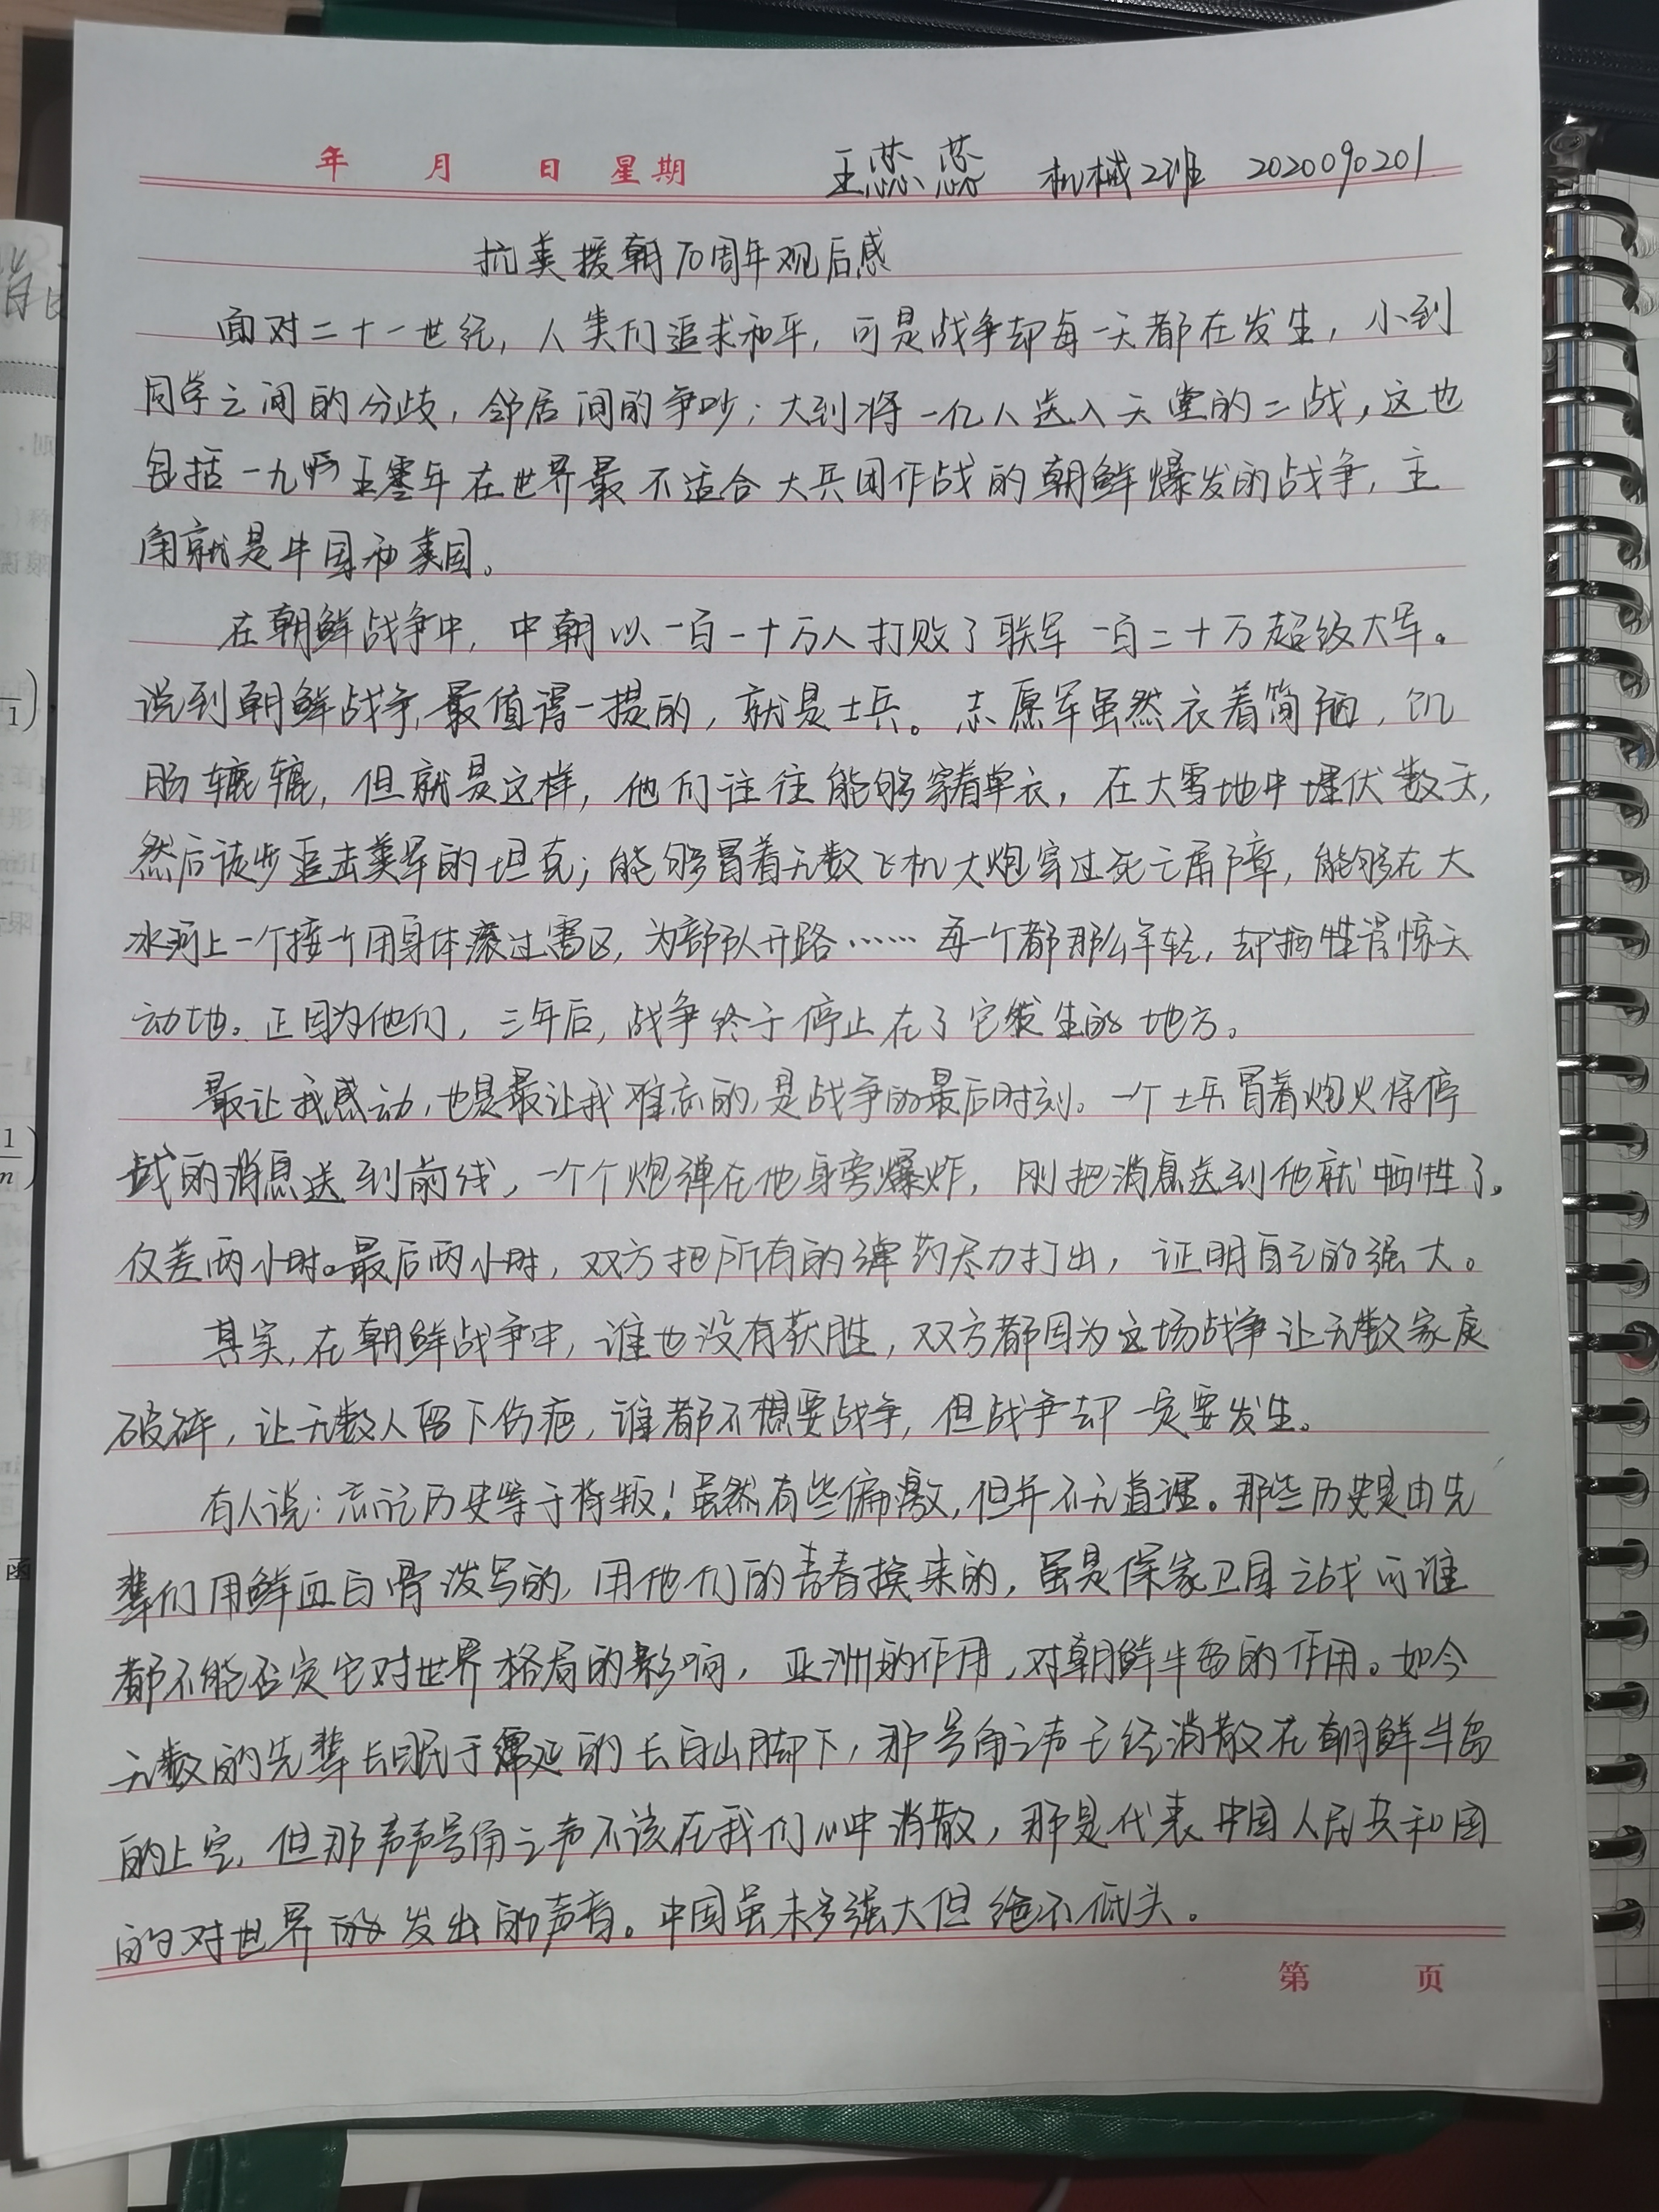 年 月 日 星期 王蕊蕊 机械2班 2020090201
抗美援朝70周年观后感
面对二十一世纪,人类们追求和平,可是战争却每一天都在发生,小到
同学之间的分歧,邻居间的争吵;大到将一亿人送入天堂的二战,这也
包括一九五零年在世界最不适合大兵团作战的朝鲜爆发的战争,主
角就是中国和美国。
在朝鲜战争中,中朝以一百一十万人打败了联军一百二十万超级大军。
说到朝鲜战争,最值得一提的,就是士兵。志愿军虽然衣着简陋,饥
肠辘辘,但就是这样,他们往往能够穿着单衣,在大雪地中埋伏数天,
然后徒步追击美军的坦克;能够冒着无数飞机大炮穿过死亡屏障,能够在大
冰河上一个接一个用身体滚过雷区,为部队开路……每一个都那么年轻,却牺牲得惊天
动地。正因为他们,三年后,战争终于停止在了它发生的地方。
最让我感动,也是最让我难忘的,是战争的最后时刻。一个士兵冒着炮火将停
战的消息送到前线,一个个炮弹在他身旁爆炸,刚把消息送到他就牺牲了,
仅差两小时。最后两小时,双方把所有的弹药尽力打出,证明自己的强大。
其实,在朝鲜战争中,谁也没有获胜,双方都因为这场战争让无数家庭
破碎,让无数人留下伤疤,谁都不想要战争,但战争却一定要发生。
有人说:忘记历史等于背叛!虽然有些偏激,但并不无道理。那些历史是由先
辈们用鲜血白骨泼写的,用他们的青春换来的,虽是保家卫国之战可谁
都不能否定它对世界格局的影响,亚洲的作用,对朝鲜半岛的作用。如今
无数的先辈长眠于绵延的长白山脚下,那号角之声已经消散在朝鲜半岛
的上空,但那声声号角之声不该在我们心中消散,那是代表中国人民共和国
的对世界发出的声音。中国虽未多强大但绝不低头。
第 页
函